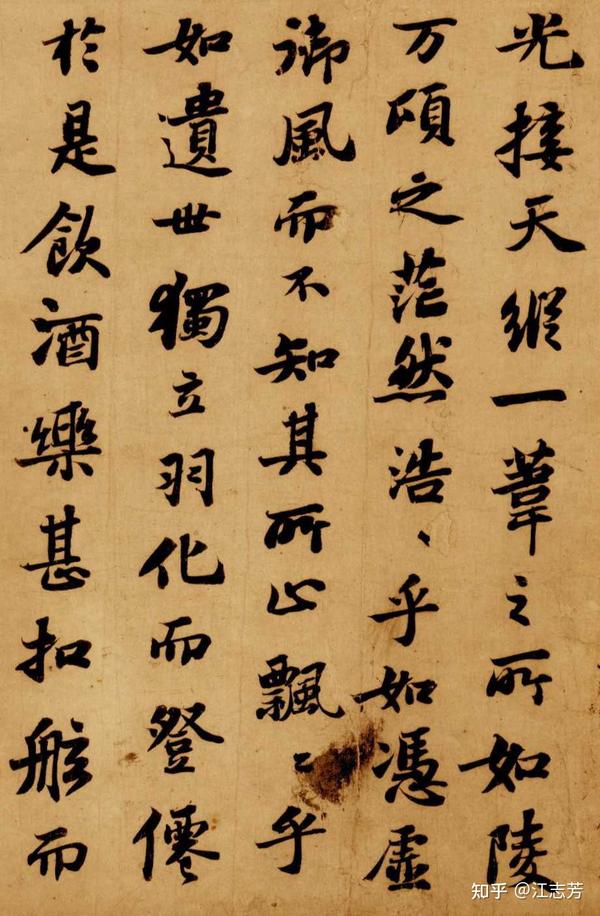 光接天縱一葦之所如陵
万頃之茫然浩〻乎如憑虛
御風而不知其所止飄〻乎
如遺世獨立羽化而登僊
於是飲酒樂甚扣舷而
知乎 @江志芳